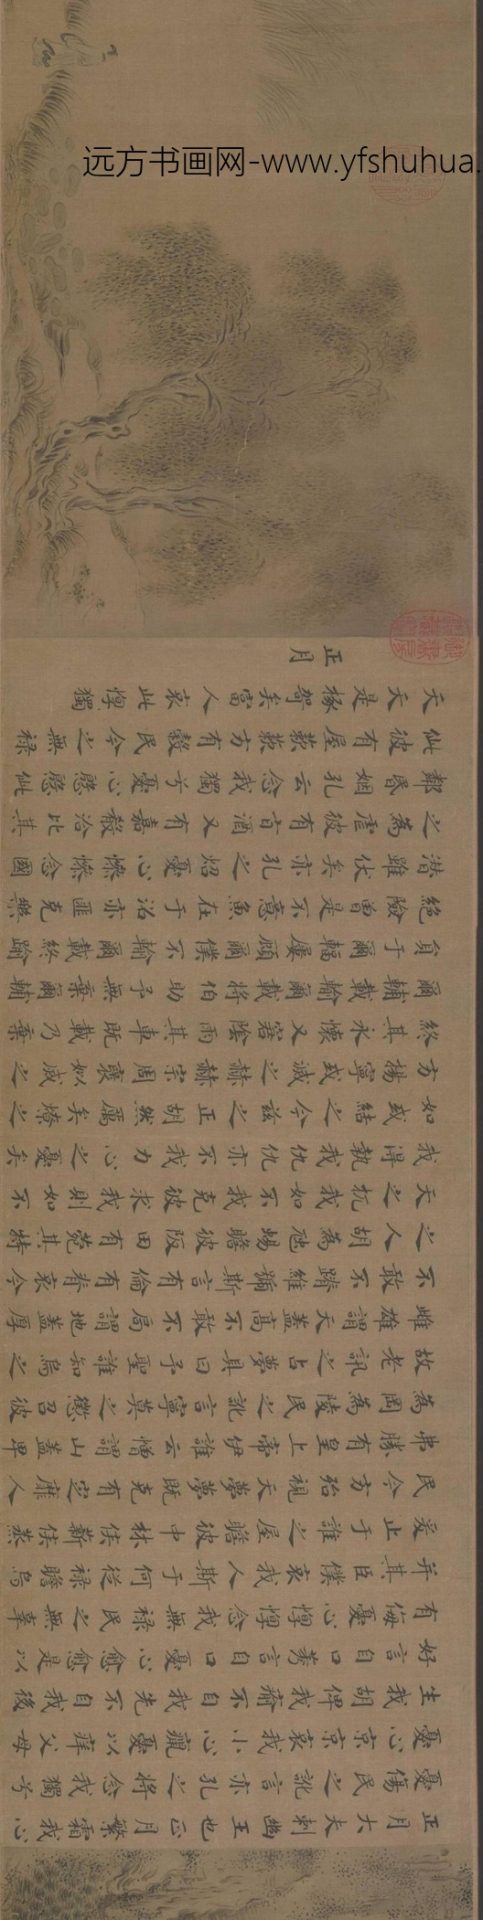 正月大夫刺幽王也正月繁霜我心
憂傷民之訛言亦孔之將念我獨兮
憂心京京哀我小心癙憂以痒父母
生我胡俾我瘉不自我先不自我後
好言自口莠言自口憂心愈愈是以
有侮憂心惸惸念我無祿民之無辜
并其臣僕哀我人斯于何從祿瞻烏
爰止于誰之屋瞻彼中林侯薪侯蒸
民今方殆視天夢夢既克有定靡人
弗勝有皇上帝伊誰云憎謂山蓋卑
為岡為陵民之訛言寧莫之懲召彼
故老訊之占夢具曰予聖誰知烏之
雌雄謂天蓋高不敢不局謂地蓋厚
不敢不蹐維號斯言有倫有脊哀今
之人胡為虺蜴瞻彼阪田有菀其特
天之扤我如不我克彼求我則如不
我得執我仇仇亦不我力心之憂矣
如或結之今茲之正胡然厲矣燎之
方揚寧或滅之赫赫宗周褒姒烕之
終其永懷又窘陰雨其車既載乃棄
爾輔載輸爾載將伯助予無棄爾輔
員于爾輻屢顧爾僕不輸爾載終踰
絕險曾是不意魚在于沼亦匪克樂
潛雖伏矣亦孔之炤憂心慘慘念國
之為虐彼有旨酒又有嘉殽洽比其
鄰昏姻孔云念我獨兮憂心慇慇佌
佌彼有屋蔌蔌方有穀民今之無祿
天夭是椓哿矣富人哀此惸獨
正月
远方书画网-www.yfshuhua.